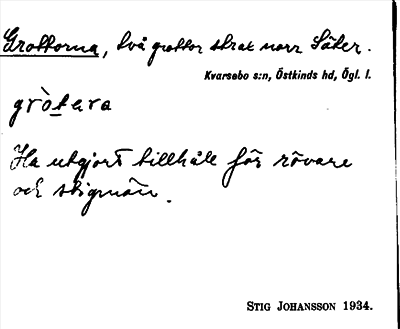 Grottorna, två grottor strax norr Säter.
Kvarsebo s:n, Östkinds hd, Ögl. l.
grò̱tera
Ha utgjort tillhåll för rövare
och stigmän.
STIG JOHANSSON 1934.